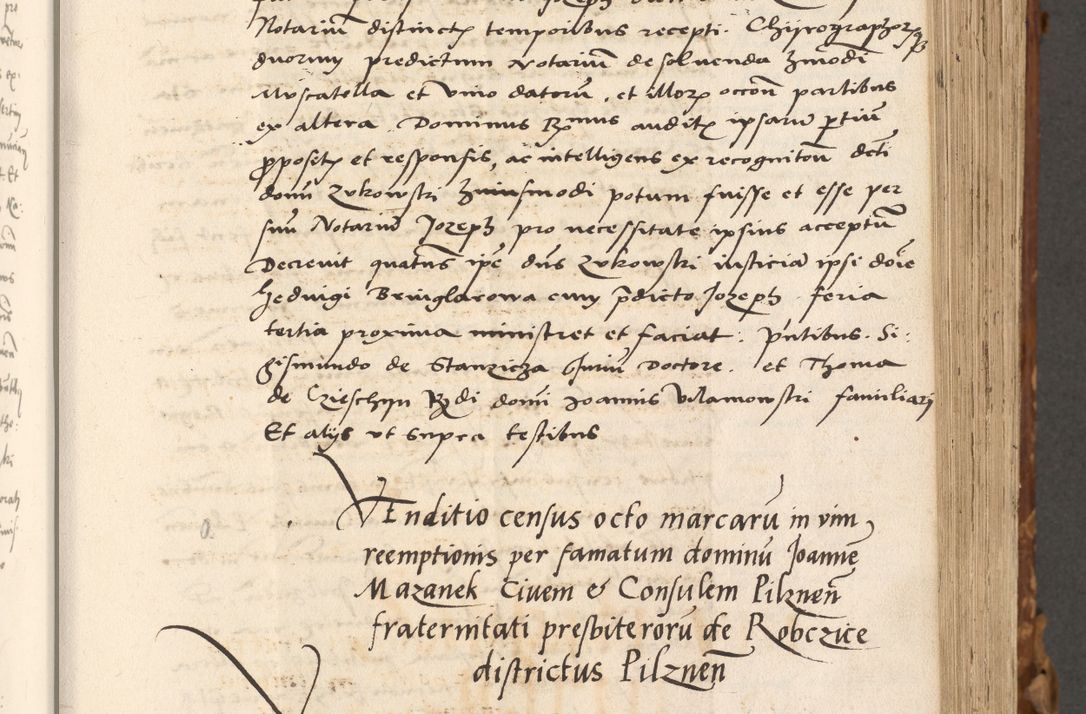 Notariũ distinctʒ temporibus recepti. Chijrographorʒ
duorum predictum Notariũ de soluenda hmodi
Muscatella et vino datorũ, et illorʒ occoñ partibus
ex altera. Dominus Rmus auditʒ ipsarũ ptiũ
propositʒ et responsis, ac intelligens ex recognitoñ dcti
domi Zukowski huiusmodi potum fuisse et esse per
suũ Notariũ Jozeph pro necessitate ipsius acceptũ
Decreuit quatñs ipẽ dñs Zukowski iusticiã ipsi doĩe
Heduigi Bringlarowa cum p̃dicto Jozeph feria
tertia proxima ministret et faciat: p̃ntibus. Si:
gismundo de Stanzicza Doctore. et Thoma
de Czieschyn domi Joannis Vilamowski familiari
Et alijs vt supra testibus
VEnditio census octo marcarũ in vim
reemptionis per famatum dominũ Joannẽ
Mazanek Ciuem & Consulem Pilzneñ
fraternitati presbiterorũ de Robczice
districtus Pilzneñ